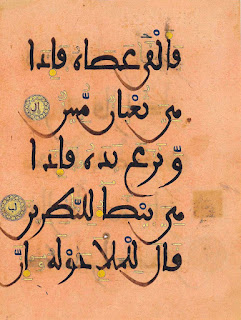 فَأَلْقَىٰ عَصَاهُ فَإِذَا
هِيَ ثُعْبَانٌ مُّبِينٌ
وَنَزَعَ يَدَهُ فَإِذَا
هِيَ بَيْضَاءُ لِلنَّٰظِرِينَ
قَالَ لِلْمَلَإِ حَوْلَهُ إِنَّ